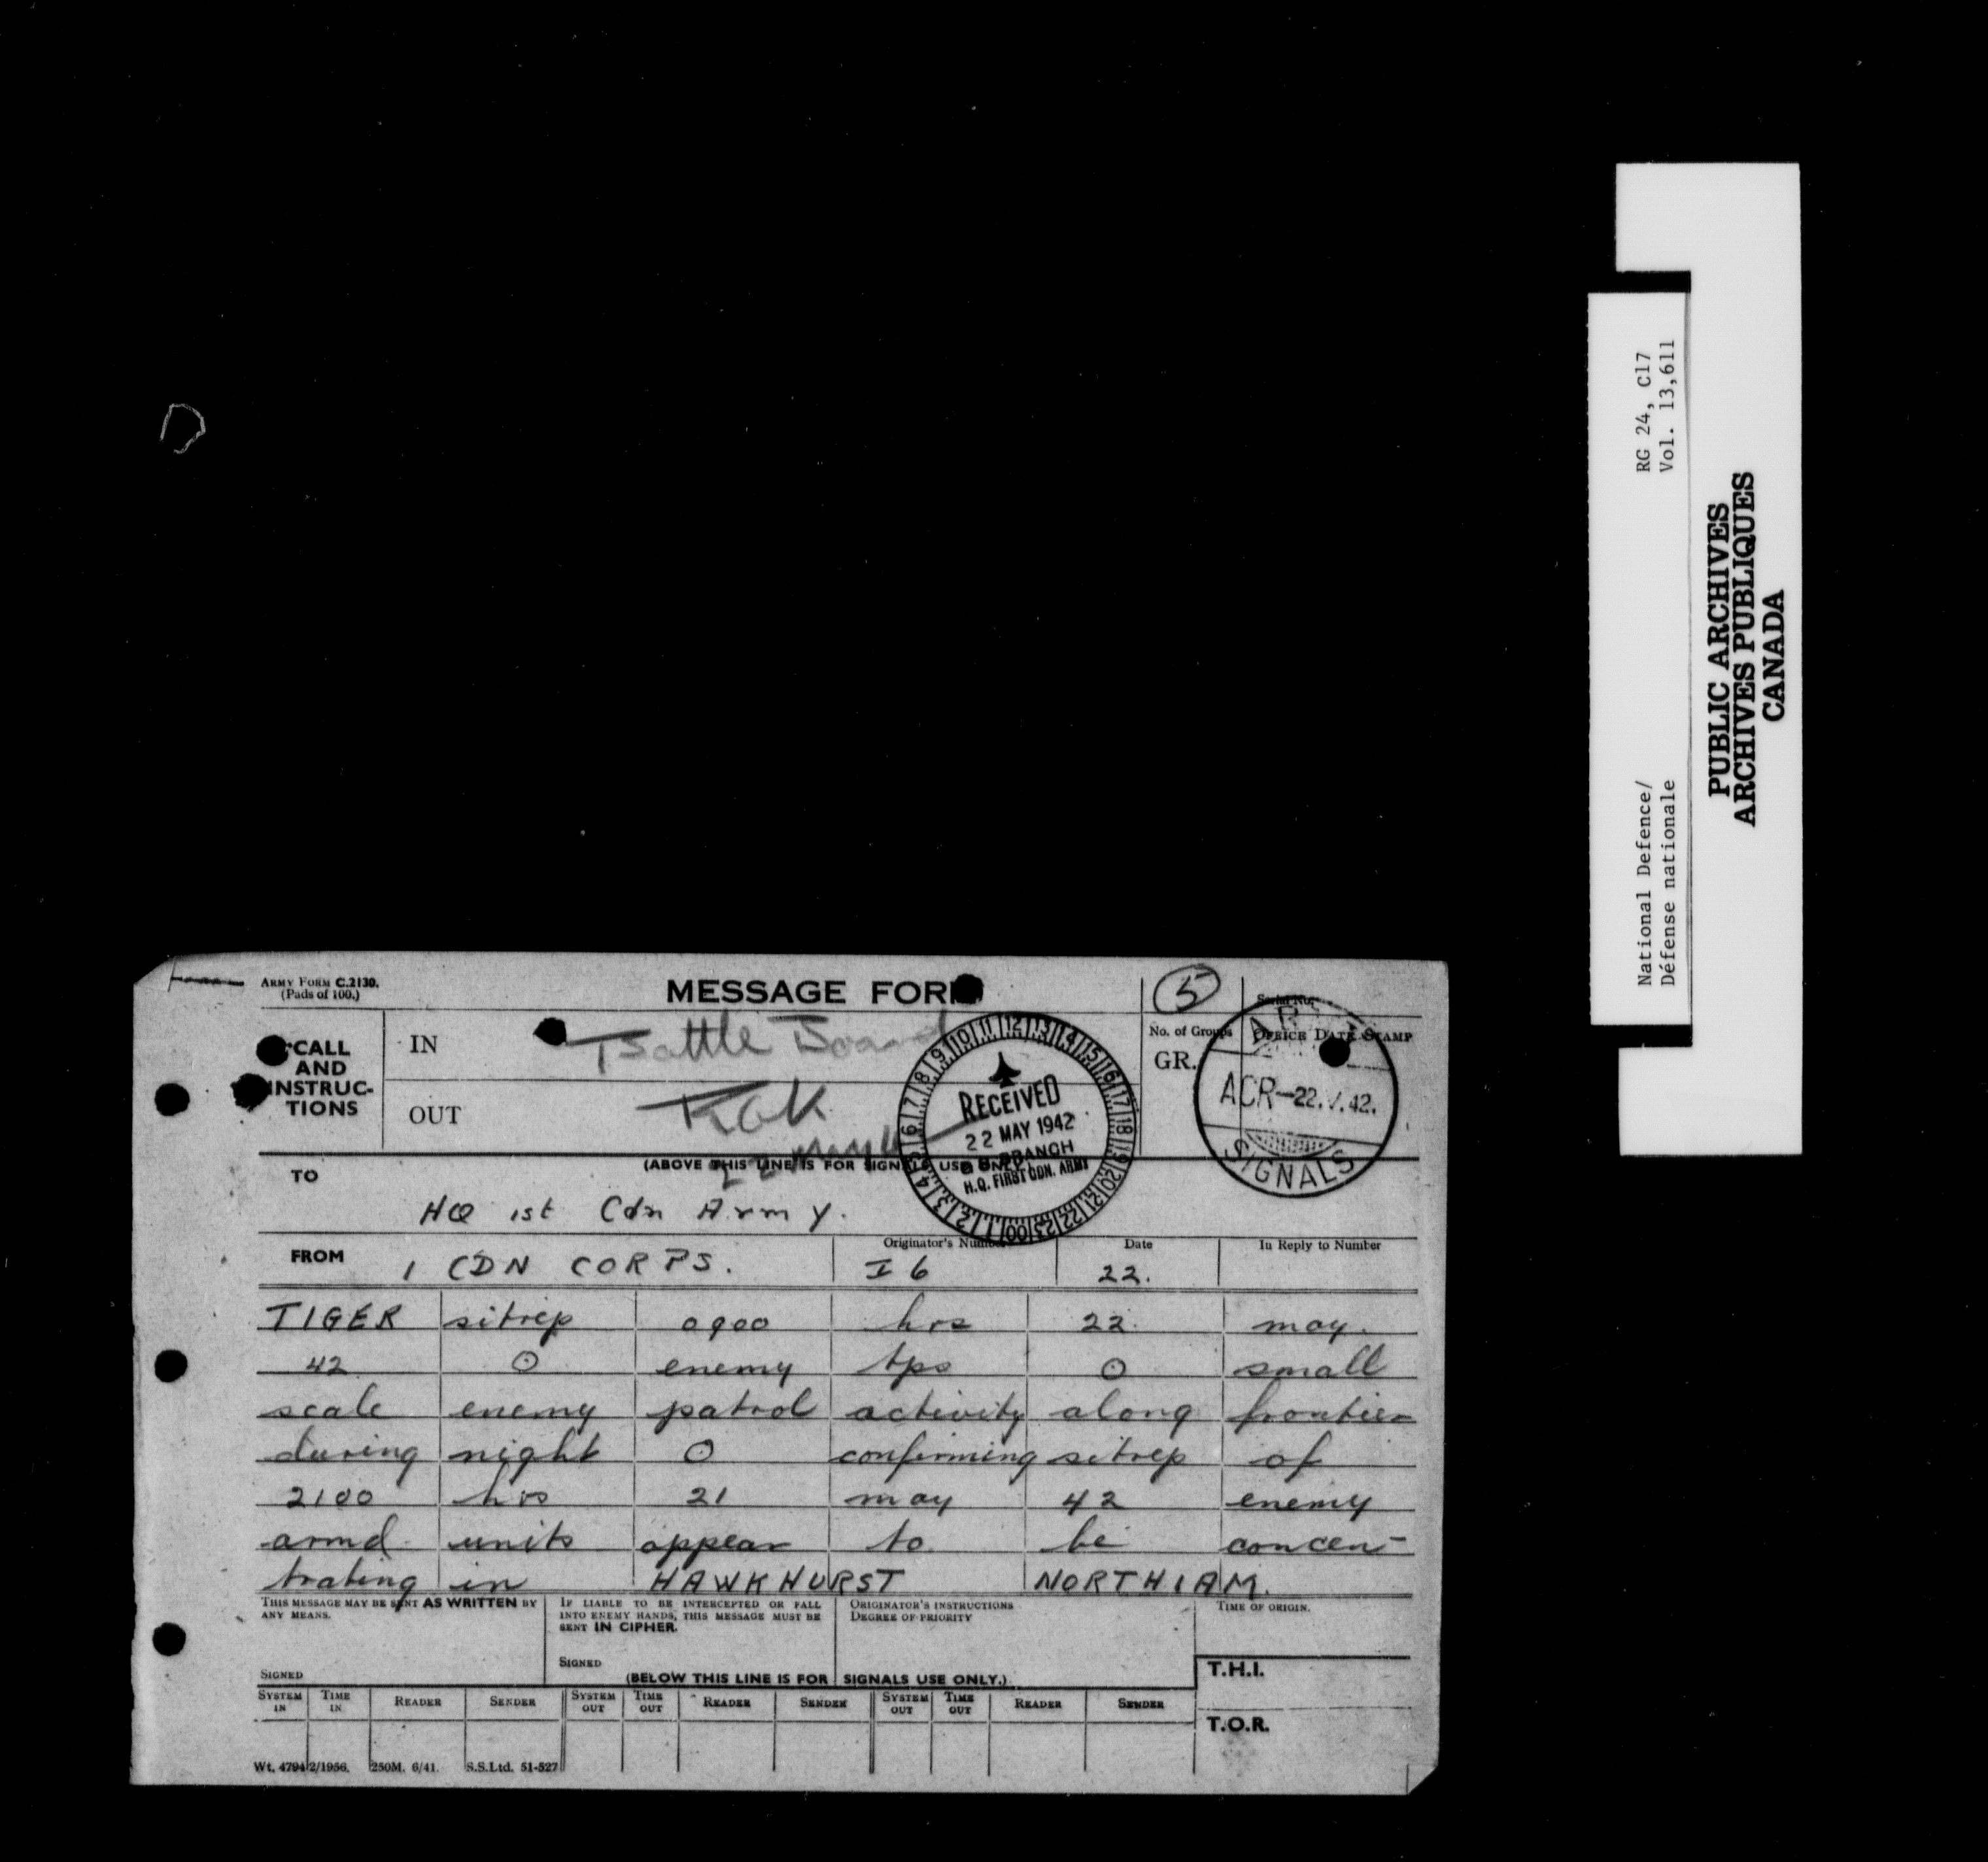 ARMY FORM C.2130.
(Pads of 100.)
MESSAGE FORM
5
Serial No.
CALL
AND
INSTRUC-
TIONS
IN
Battle Board
OUT
No. of Groups
GR.
OFFICE DATE STAMP
ACR-22.V.42.
SIGNALS
RECEIVED
22 MAY 1942
BRANCH
H.Q. FIRST CDN. ARMY
(ABOVE THIS LINE IS FOR SIGNALS USE ONLY.)
TO
HQ 1st Cdn Army.
FROM 1 CDN CORPS.
Originator's Number
I 6
Date
22.
In Reply to Number
TIGER sitrep 0900 hrs 22 may.
42 O enemy tps O small
scale enemy patrol activity along frontier
during night O confirming sitrep of
2100 hrs 21 may 42 enemy
armd units appear to be concen-
trating in HAWKHURST NORTHIAM.
THIS MESSAGE MAY BE SENT AS WRITTEN BY
ANY MEANS.
SIGNED
IF LIABLE TO BE INTERCEPTED OR FALL
INTO ENEMY HANDS, THIS MESSAGE MUST BE
SENT IN CIPHER.
SIGNED
ORIGINATOR'S INSTRUCTIONS
DEGREE OF PRIORITY
TIME OF ORIGIN.
(BELOW THIS LINE IS FOR SIGNALS USE ONLY.)
T.H.I.
T.O.R.
SYSTEM IN TIME IN READER SENDER SYSTEM OUT TIME OUT READER SENDER SYSTEM OUT TIME OUT READER SENDER
Wt. 47942/1956. 250M. 6/41. S.S.Ltd. 51-527
National Defence/ RG 24, C17
Défense nationale Vol. 13,611
PUBLIC ARCHIVES
ARCHIVES PUBLIQUES
CANADA